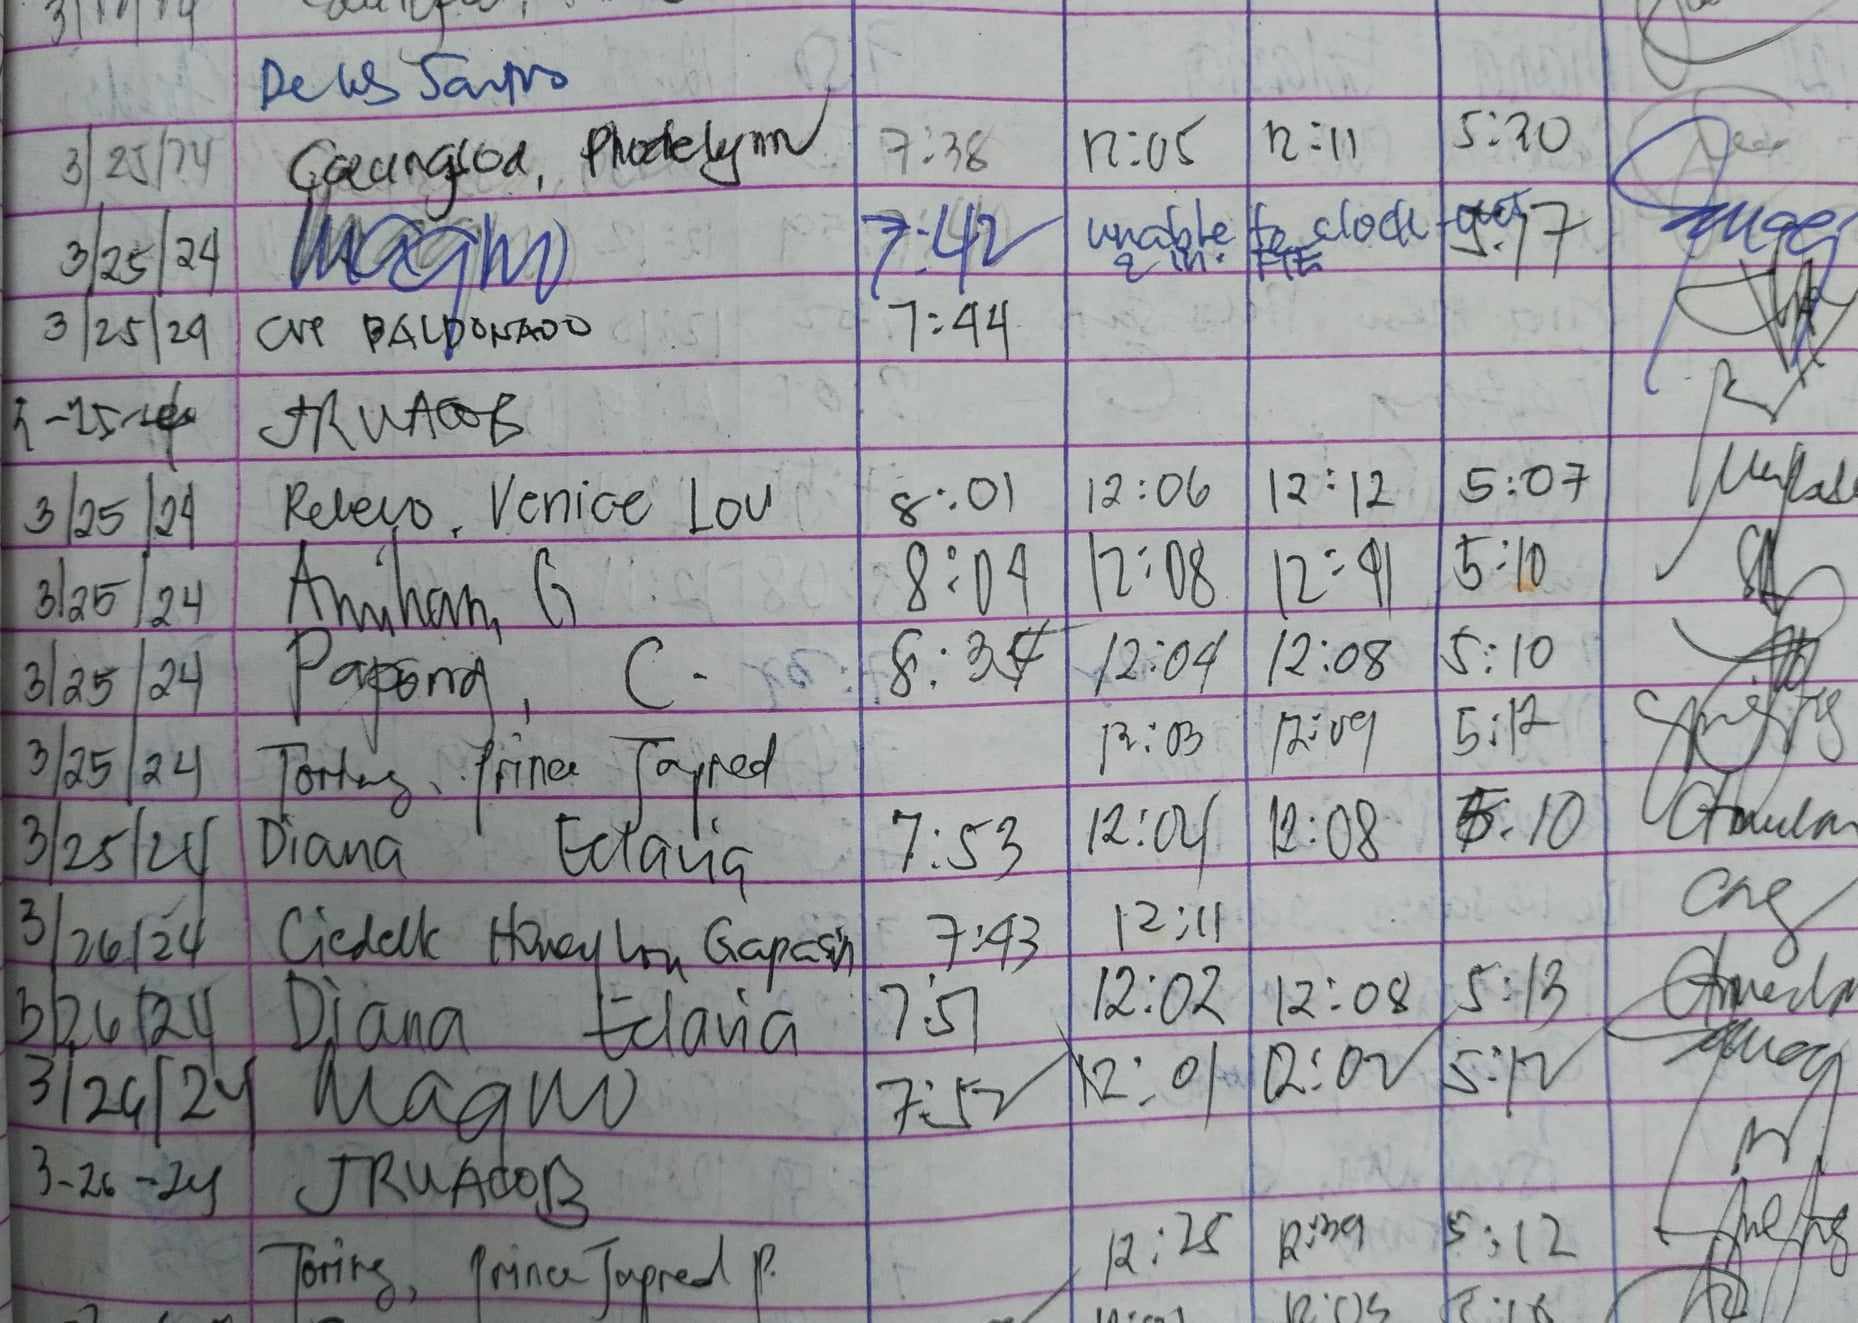 De los Santos
3/25/24 Caungloa, Phodelynn 7:38 12:05 12:11 5:20
3/25/24 Magno 7:42 unable to clock-out 5:17
& in. FTE
3/25/24 CVE BALDONADO 7:44
3-25-24 JRUACOB
3/25/24 Relevo, Venice Lou 8:01 12:06 12:12 5:07
3/25/24 Amihan, G 8:04 12:08 12:41 5:10
3/25/24 Papong, C. 8:34 12:04 12:08 5:10
3/25/24 Toring, Prince Jayred 12:03 12:09 5:12
3/25/24 Diana Eclavia 7:53 12:04 12:08 5:10
3/26/24 Ciedelle Honeylyn Gapasin 7:43 12:11
3/26/24 Diana Eclavia 7:51 12:02 12:08 5:13
3/26/24 Magno 7:52 12:01 12:02 5:12
3-26-24 JRUACOB
Toring, Prince Jayred P. 12:25 12:39 5:12